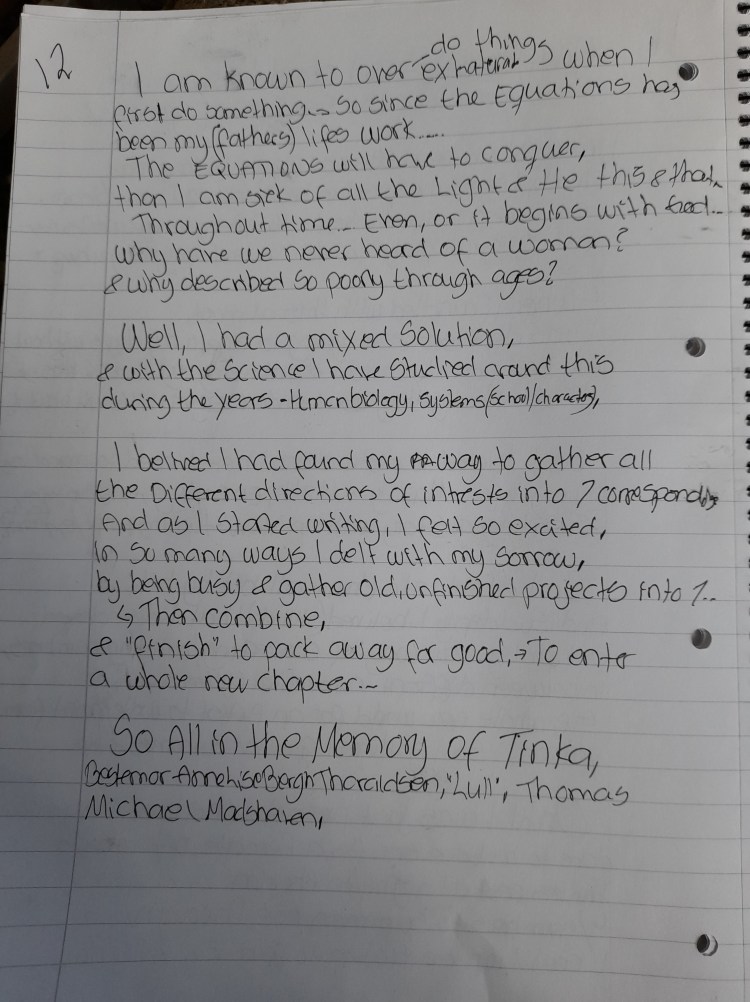 12
do things
I am known to over exhaterat when I
first do something... So since the Equations has
been my (fathers) lifes work....
The EQUATIONS will have to conquer,
than I am sick of all the Light & He this & that..
Throughout time... Even, or it begins with
why have we never heard of a woman?
& why described so poory through ages?
Well, I had a mixed solution,
& with the Science I have studied around this
during the years - Humanbiology, systems (School/character),
I belived I had found my way to gather all
the Different directions of intrests into 1 corresponding
And as I started writing, I felt so excited,
In so many ways I delt with my sorrow,
by being busy & gather old, unfinished projects into 1..
↳ Then combine,
& "finish" to pack away for good, → To enter
a whole new chapter...
So All in the Memory of Tinka,
Bestemor Annelise Bergh Tharaldsen, "Lull", Thomas
Michael Madshaven,